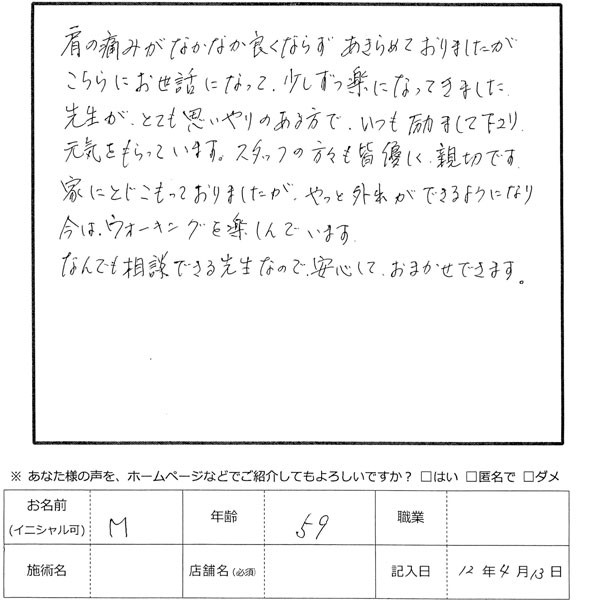 肩の痛みがなかなか良くならず あきらめておりましたが
こちらにお世話になって、少しずつ楽になってきました。
先生が、とても思いやりのある方で、いつも励まして下さり、
元気をもらっています。スタッフの方々も皆優しく、親切です。
家にとじこもっておりましたが、やっと外出ができるようになり
今は、ウォーキングを楽しんでいます。
なんでも相談できる先生なので、安心して、おまかせできます。
※ あなた様の声を、ホームページなどでご紹介してもよろしいですか？ □はい □匿名で □ダメ
お名前 (イニシャル可) M 年齢 59 職業
施術名 店舗名 (必須) 記入日 12 年 4 月 13 日